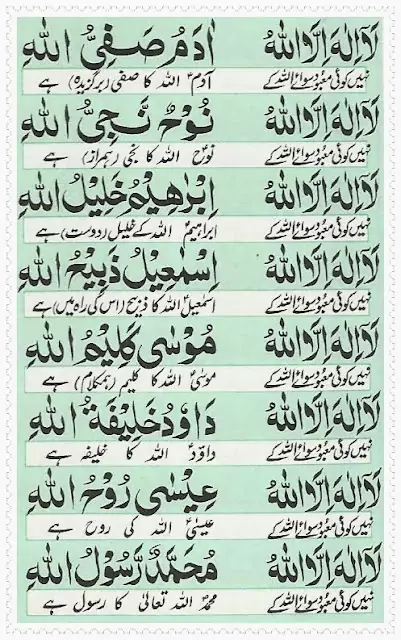 لَا اِلٰهَ اِلَّا اللهُ اٰدَمُ صَفِیُّ اللهِ
نہیں کوئی معبود سوائے اللہ کے آدمؑ اللہ کا صفی (برگزیدہ) ہے
لَا اِلٰهَ اِلَّا اللهُ نُوْحٌ نَجِیُّ اللهِ
نہیں کوئی معبود سوائے اللہ کے نوحؑ اللہ کا نجی (ہمراز) ہے
لَا اِلٰهَ اِلَّا اللهُ اِبْرٰهِیْمُ خَلِیْلُ اللهِ
نہیں کوئی معبود سوائے اللہ کے ابراہیمؑ اللہ کے خلیل (دوست) ہے
لَا اِلٰهَ اِلَّا اللهُ اِسْمٰعِیْلُ ذَبِیْحُ اللهِ
نہیں کوئی معبود سوائے اللہ کے اسمٰعیلؑ اللہ کا ذبیح (اس کی راہ میں) ہے
لَا اِلٰهَ اِلَّا اللهُ مُوْسٰی کَلِیْمُ اللهِ
نہیں کوئی معبود سوائے اللہ کے موسیٰؑ اللہ کا کلیم (ہمکلام) ہے
لَا اِلٰهَ اِلَّا اللهُ دَاوٗدُ خَلِیْفَةُ اللهِ
نہیں کوئی معبود سوائے اللہ کے داؤدؑ اللہ کا خلیفہ ہے
لَا اِلٰهَ اِلَّا اللهُ عِیْسٰی رُوْحُ اللهِ
نہیں کوئی معبود سوائے اللہ کے عیسیٰؑ اللہ کی روح ہے
لَا اِلٰهَ اِلَّا اللهُ مُحَمَّدٌ رَّسُوْلُ اللهِ
نہیں کوئی معبود سوائے اللہ کے محمدؐ اللہ تعالیٰ کا رسول ہے